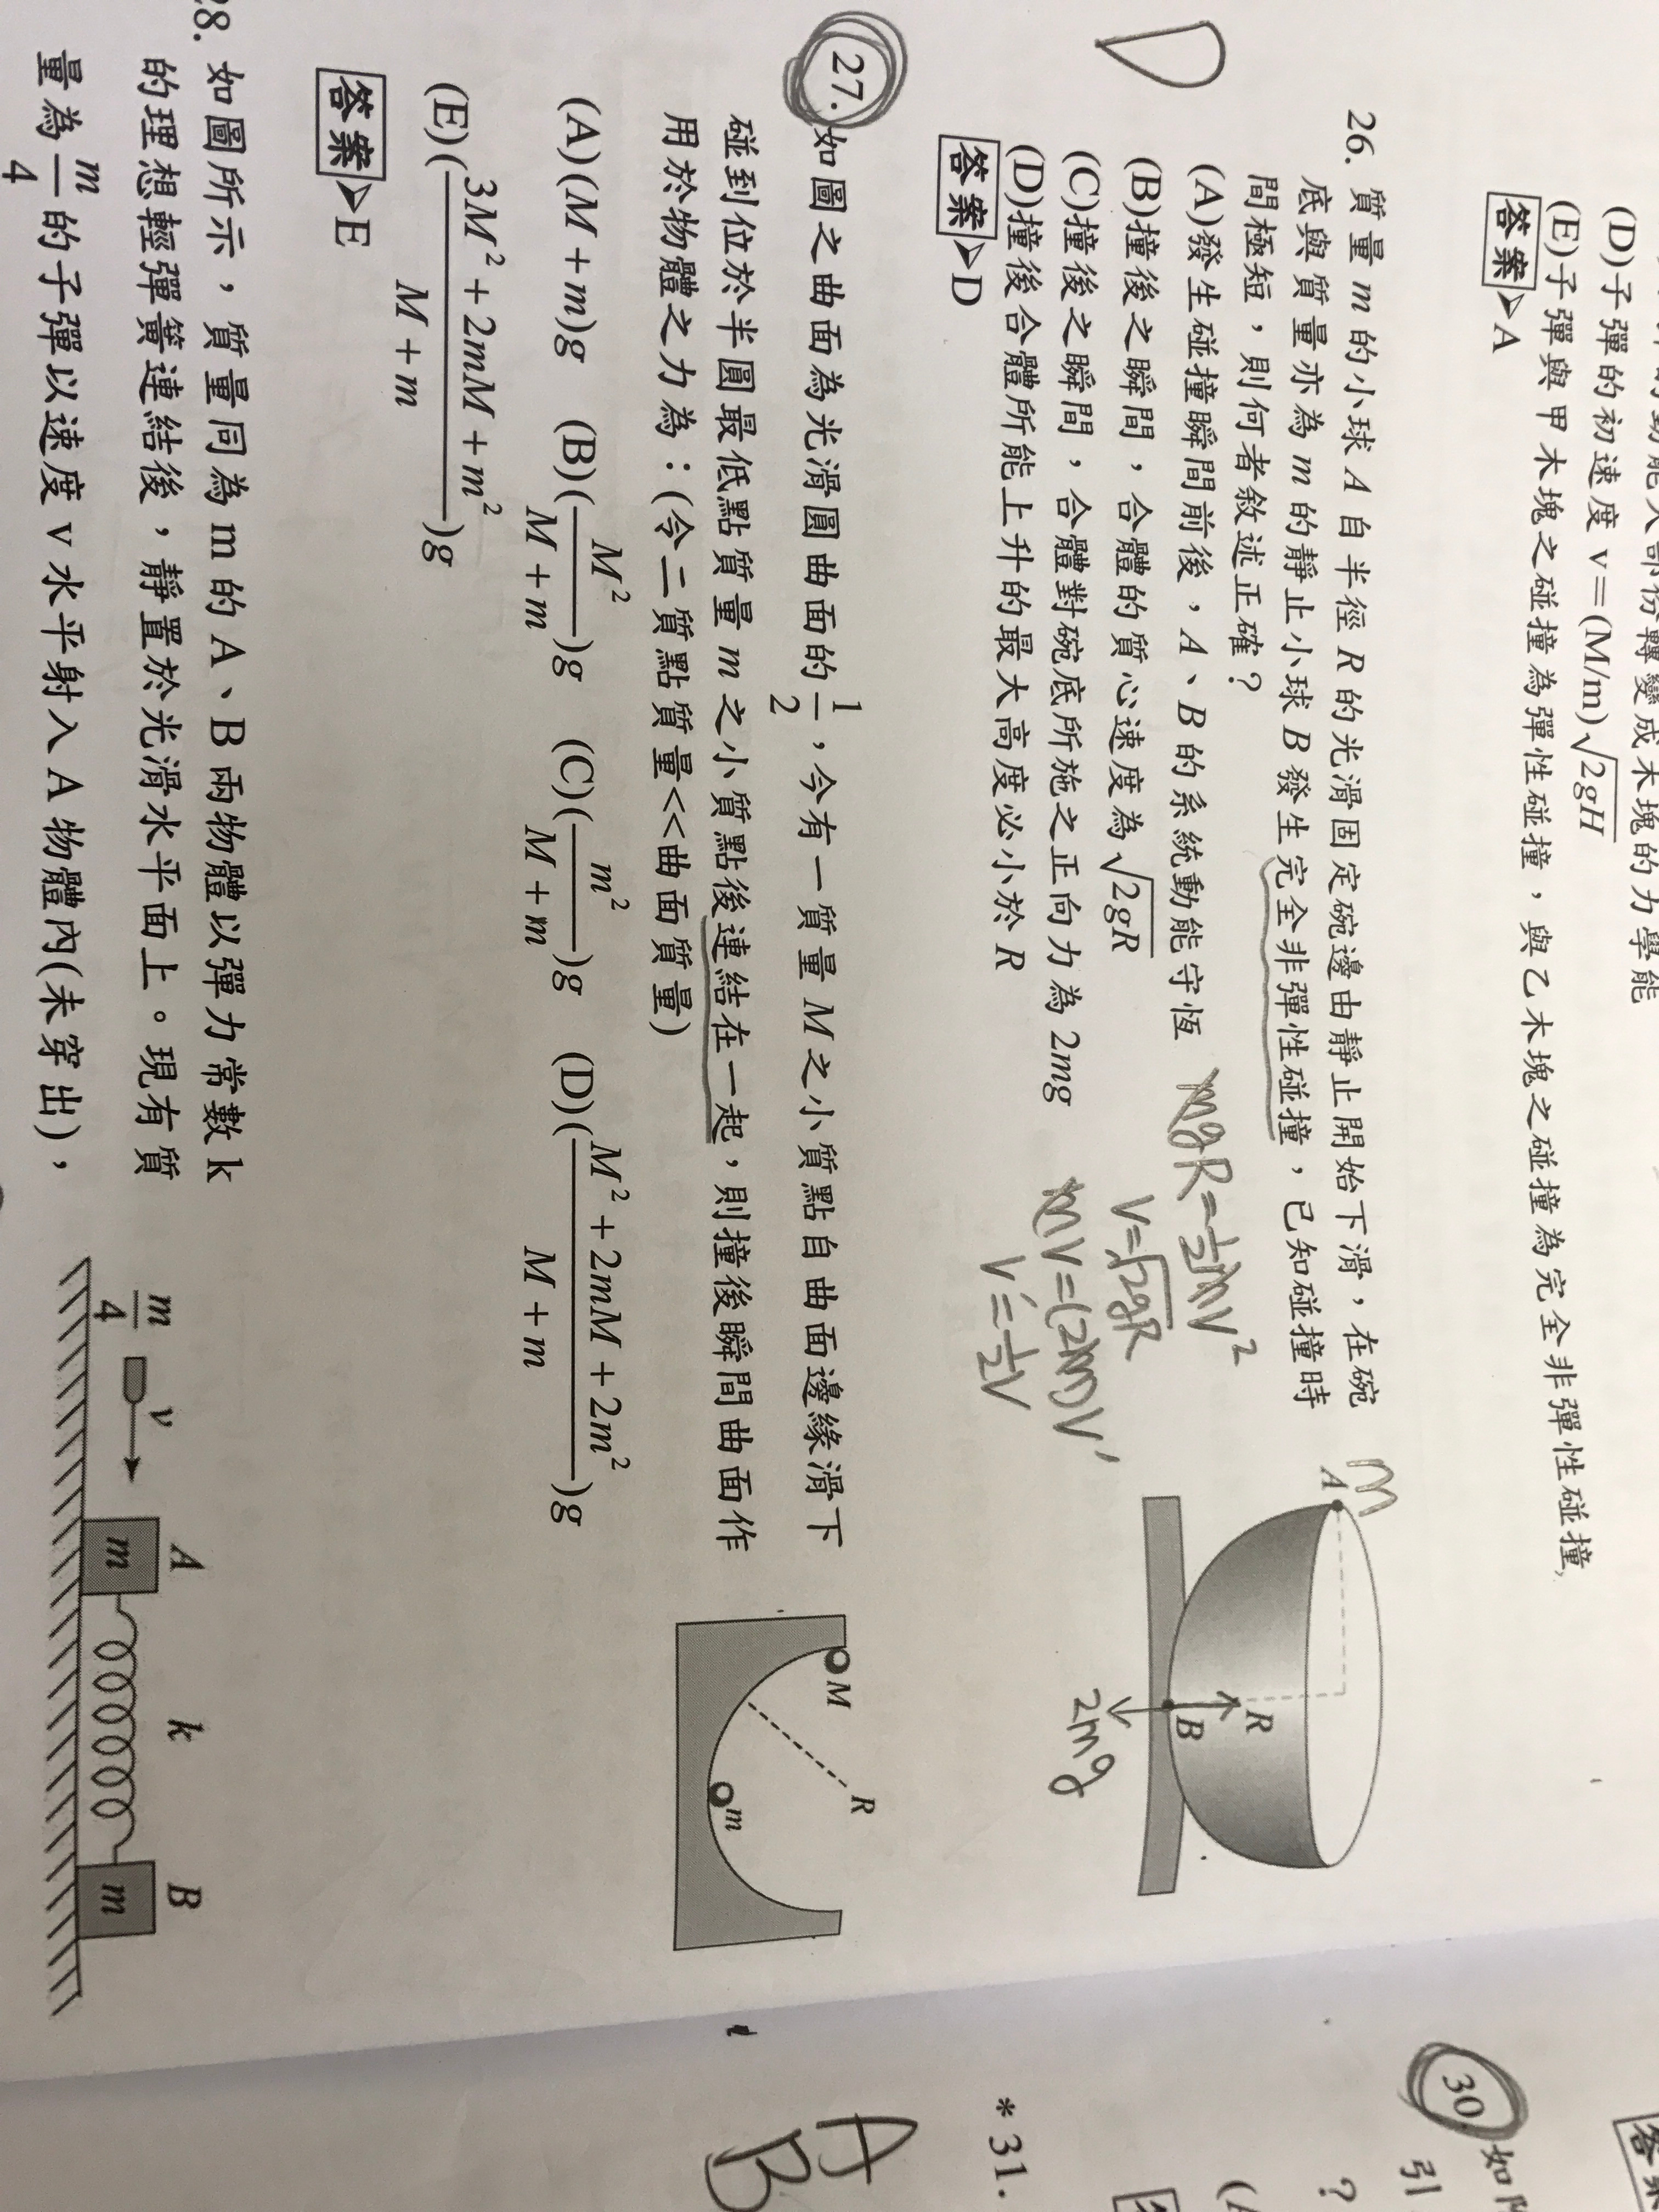 (D)子彈的初速度 v=(M/m)√2gH
(E)子彈與甲木塊之碰撞為彈性碰撞，與乙木塊之碰撞為完全非彈性碰撞,
答案▶A
D
26. 質量 m 的小球 A 自半徑 R 的光滑固定碗邊由靜止開始下滑，在碗
底與質量亦為 m 的靜止小球 B 發生完全非彈性碰撞，已知碰撞時
間極短，則何者敘述正確？
(A)發生碰撞瞬間前後，A、B 的系統動能守恆
(B)撞後之瞬間，合體的質心速度為√2gR
(C)撞後之瞬間，合體對碗底所施之正向力為 2mg
(D)撞後合體所能上升的最大高度必小於 R
答案▶D
mgR=½mV²
V=√2gR
mV=(2m)V'
V'=½V
m
A
R
B
2mg
27. 如圖之曲面為光滑圓曲面的1/2，今有一質量 M 之小質點自曲面邊緣滑下
碰到位於半圓最低點質量 m 之小質點後連結在一起，則撞後瞬間曲面作
用於物體之力為：(令二質點質量<<曲面質量)
(A)(M+m)g (B)(M²/(M+m))g (C)(m²/(M+m))g (D)((M²+2mM+2m²)/(M+m))g
(E)((3M²+2mM+m²)/(M+m))g
答案▶E
M
R
m
28. 如圖所示，質量同為 m 的 A、B 兩物體以彈力常數 k
的理想輕彈簧連結後，靜置於光滑水平面上。現有質
量為m/4的子彈以速度 v 水平射入 A 物體內(未穿出)，
m/4
v
A
m
k
B
m
30.
如
引
?
*31.
A
B